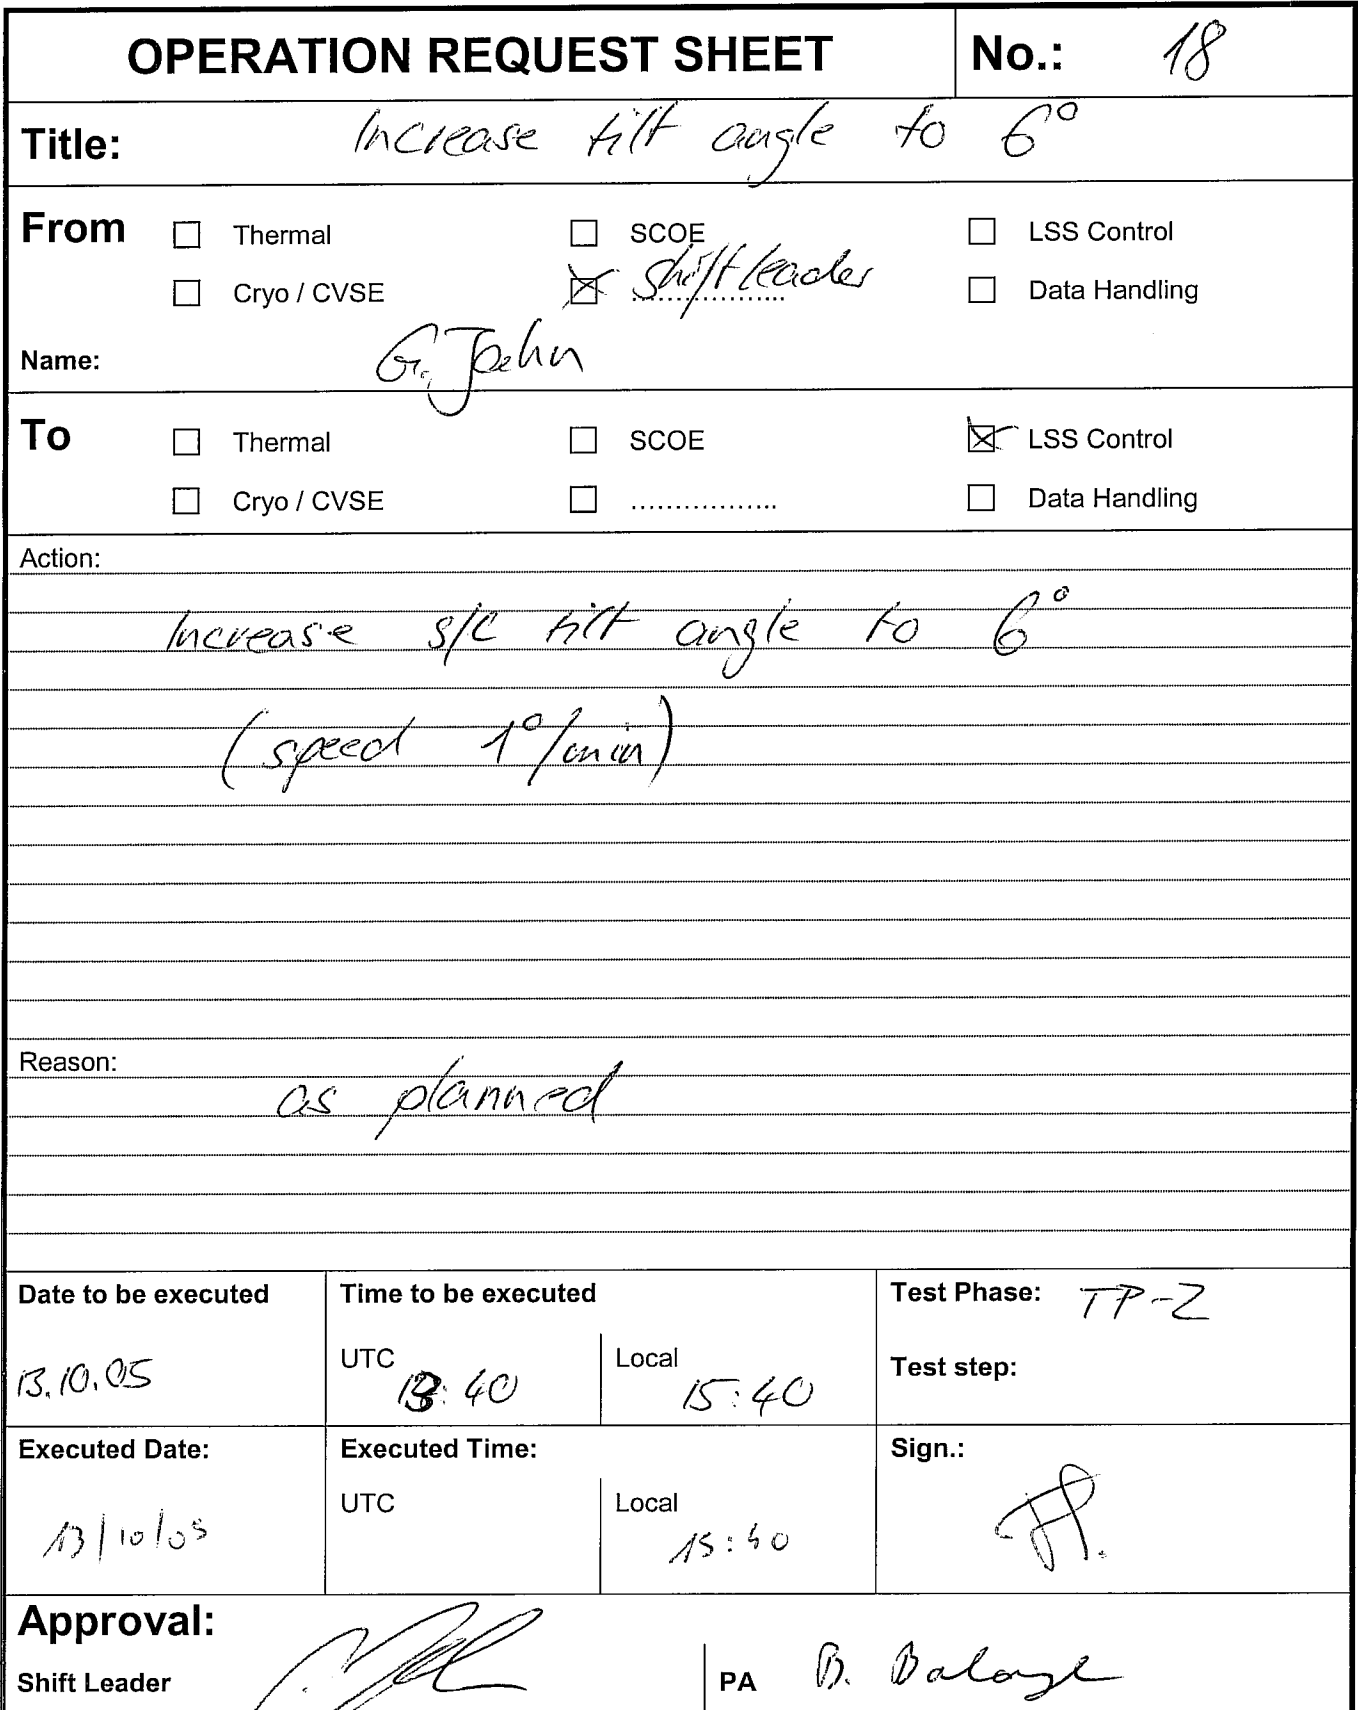 OPERATION REQUEST SHEET No.: 18
Title: Increase tilt angle to 6°
From Thermal SCOE LSS Control
Cryo / CVSE Shiftleader Data Handling
Name: G. Jahn
To Thermal SCOE LSS Control
Cryo / CVSE ................. Data Handling
Action:
Increase s/c tilt angle to 6°
(speed 1°/min)
Reason:
as planned
Date to be executed Time to be executed Test Phase: TP-2
UTC Local Test step:
13.10.05 13:40 15:40
Executed Date: Executed Time: Sign.:
UTC Local
13/10/05 15:40
Approval:
Shift Leader PA B.